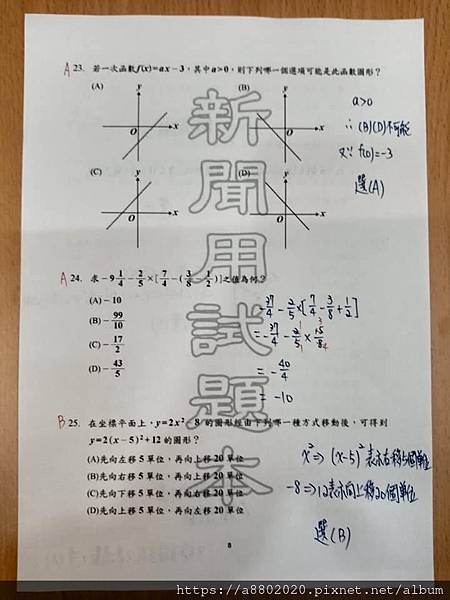 A 23. 若一次函數 f(x)=ax−3，其中 a>0，則下列哪一個選項可能是此函數圖形？
(A) (B)
y y
O x O x
(C) (D)
y y
O x O x
a>0
∴ (B)(D)不可能
又∵ f(0)=-3
選(A)
A 24. 求 −9 1/4 − 2/5 ×[ 7/4 −( 3/8 − 1/2 )]之值為何？
(A) −10
(B) − 99/10
(C) − 17/2
(D) − 43/5
-37/4 - 2/5 × [7/4 - 3/8 + 1/2]
= -37/4 - 2/5 × 15/8
= -40/4
= -10
B 25. 在坐標平面上，y=2x²−8 的圖形經由下列哪一種方式移動後，可得到
y=2(x−5)²+12 的圖形？
(A)先向左移 5 單位，再向上移 20 單位
(B)先向右移 5 單位，再向上移 20 單位
(C)先向下移 5 單位，再向右移 20 單位
(D)先向上移 5 單位，再向左移 20 單位
x² ⇒ (x-5)² 表示右移5個單位
-8 ⇒ 12表示向上移20個單位
選(B)
8
新聞用試題本
https://a8802020.pixnet.net/album